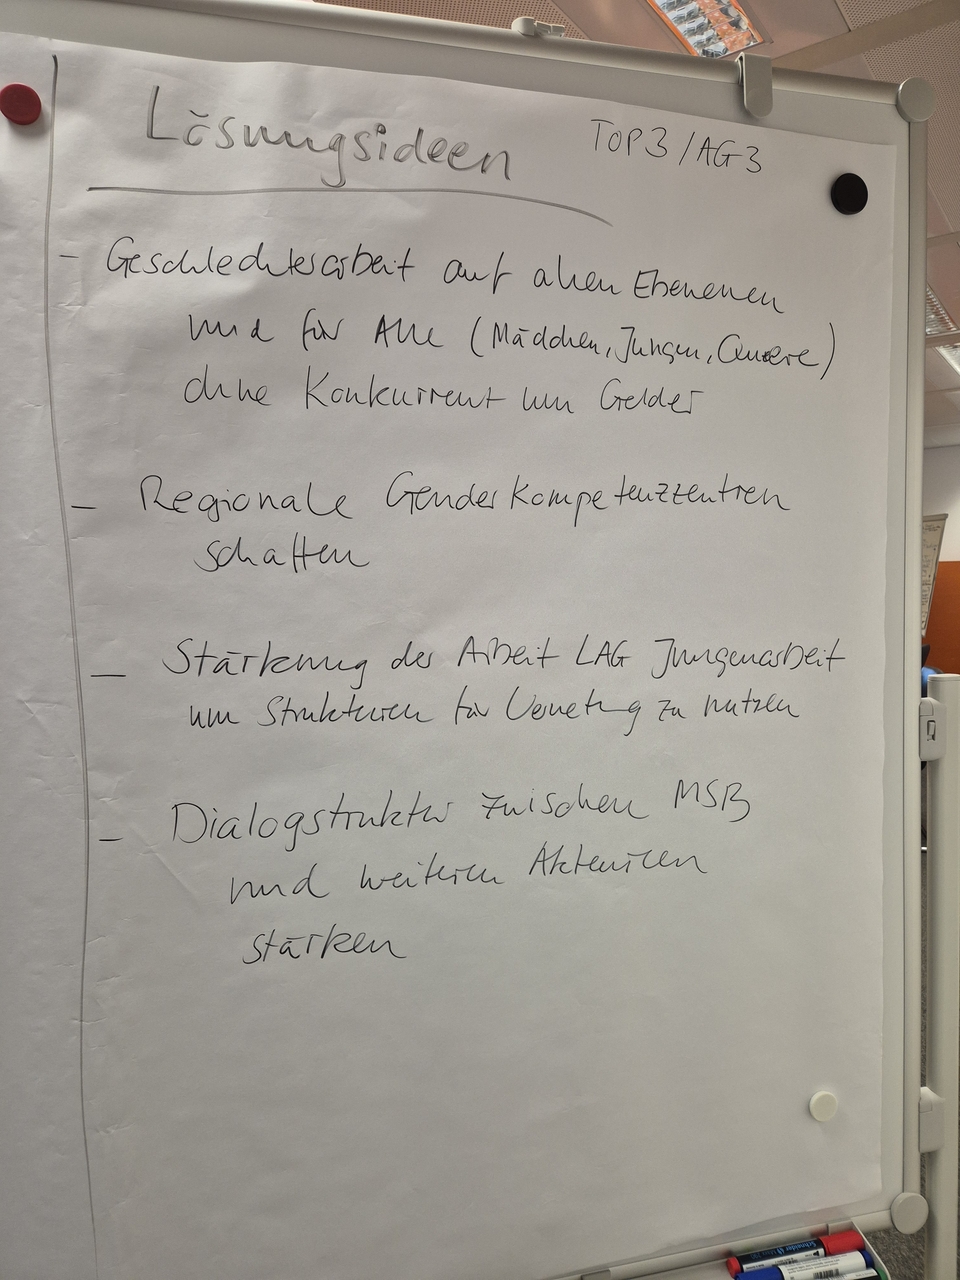 Lösungsideen TOP3/AG3
- Geschlechterarbeit auf allen Ebenenen
und für Alle (Mädchen, Jungen, Queere)
ohne Konkurrent um Gelder
- Regionale Genderkompetenzzentren
schaffen
- Stärkung der Arbeit LAG Jungenarbeit
um Strukturen für Vernetzung zu nutzen
- Dialogstruktur zwischen MSB
und weiteren Akteuren
stärken
Schneider